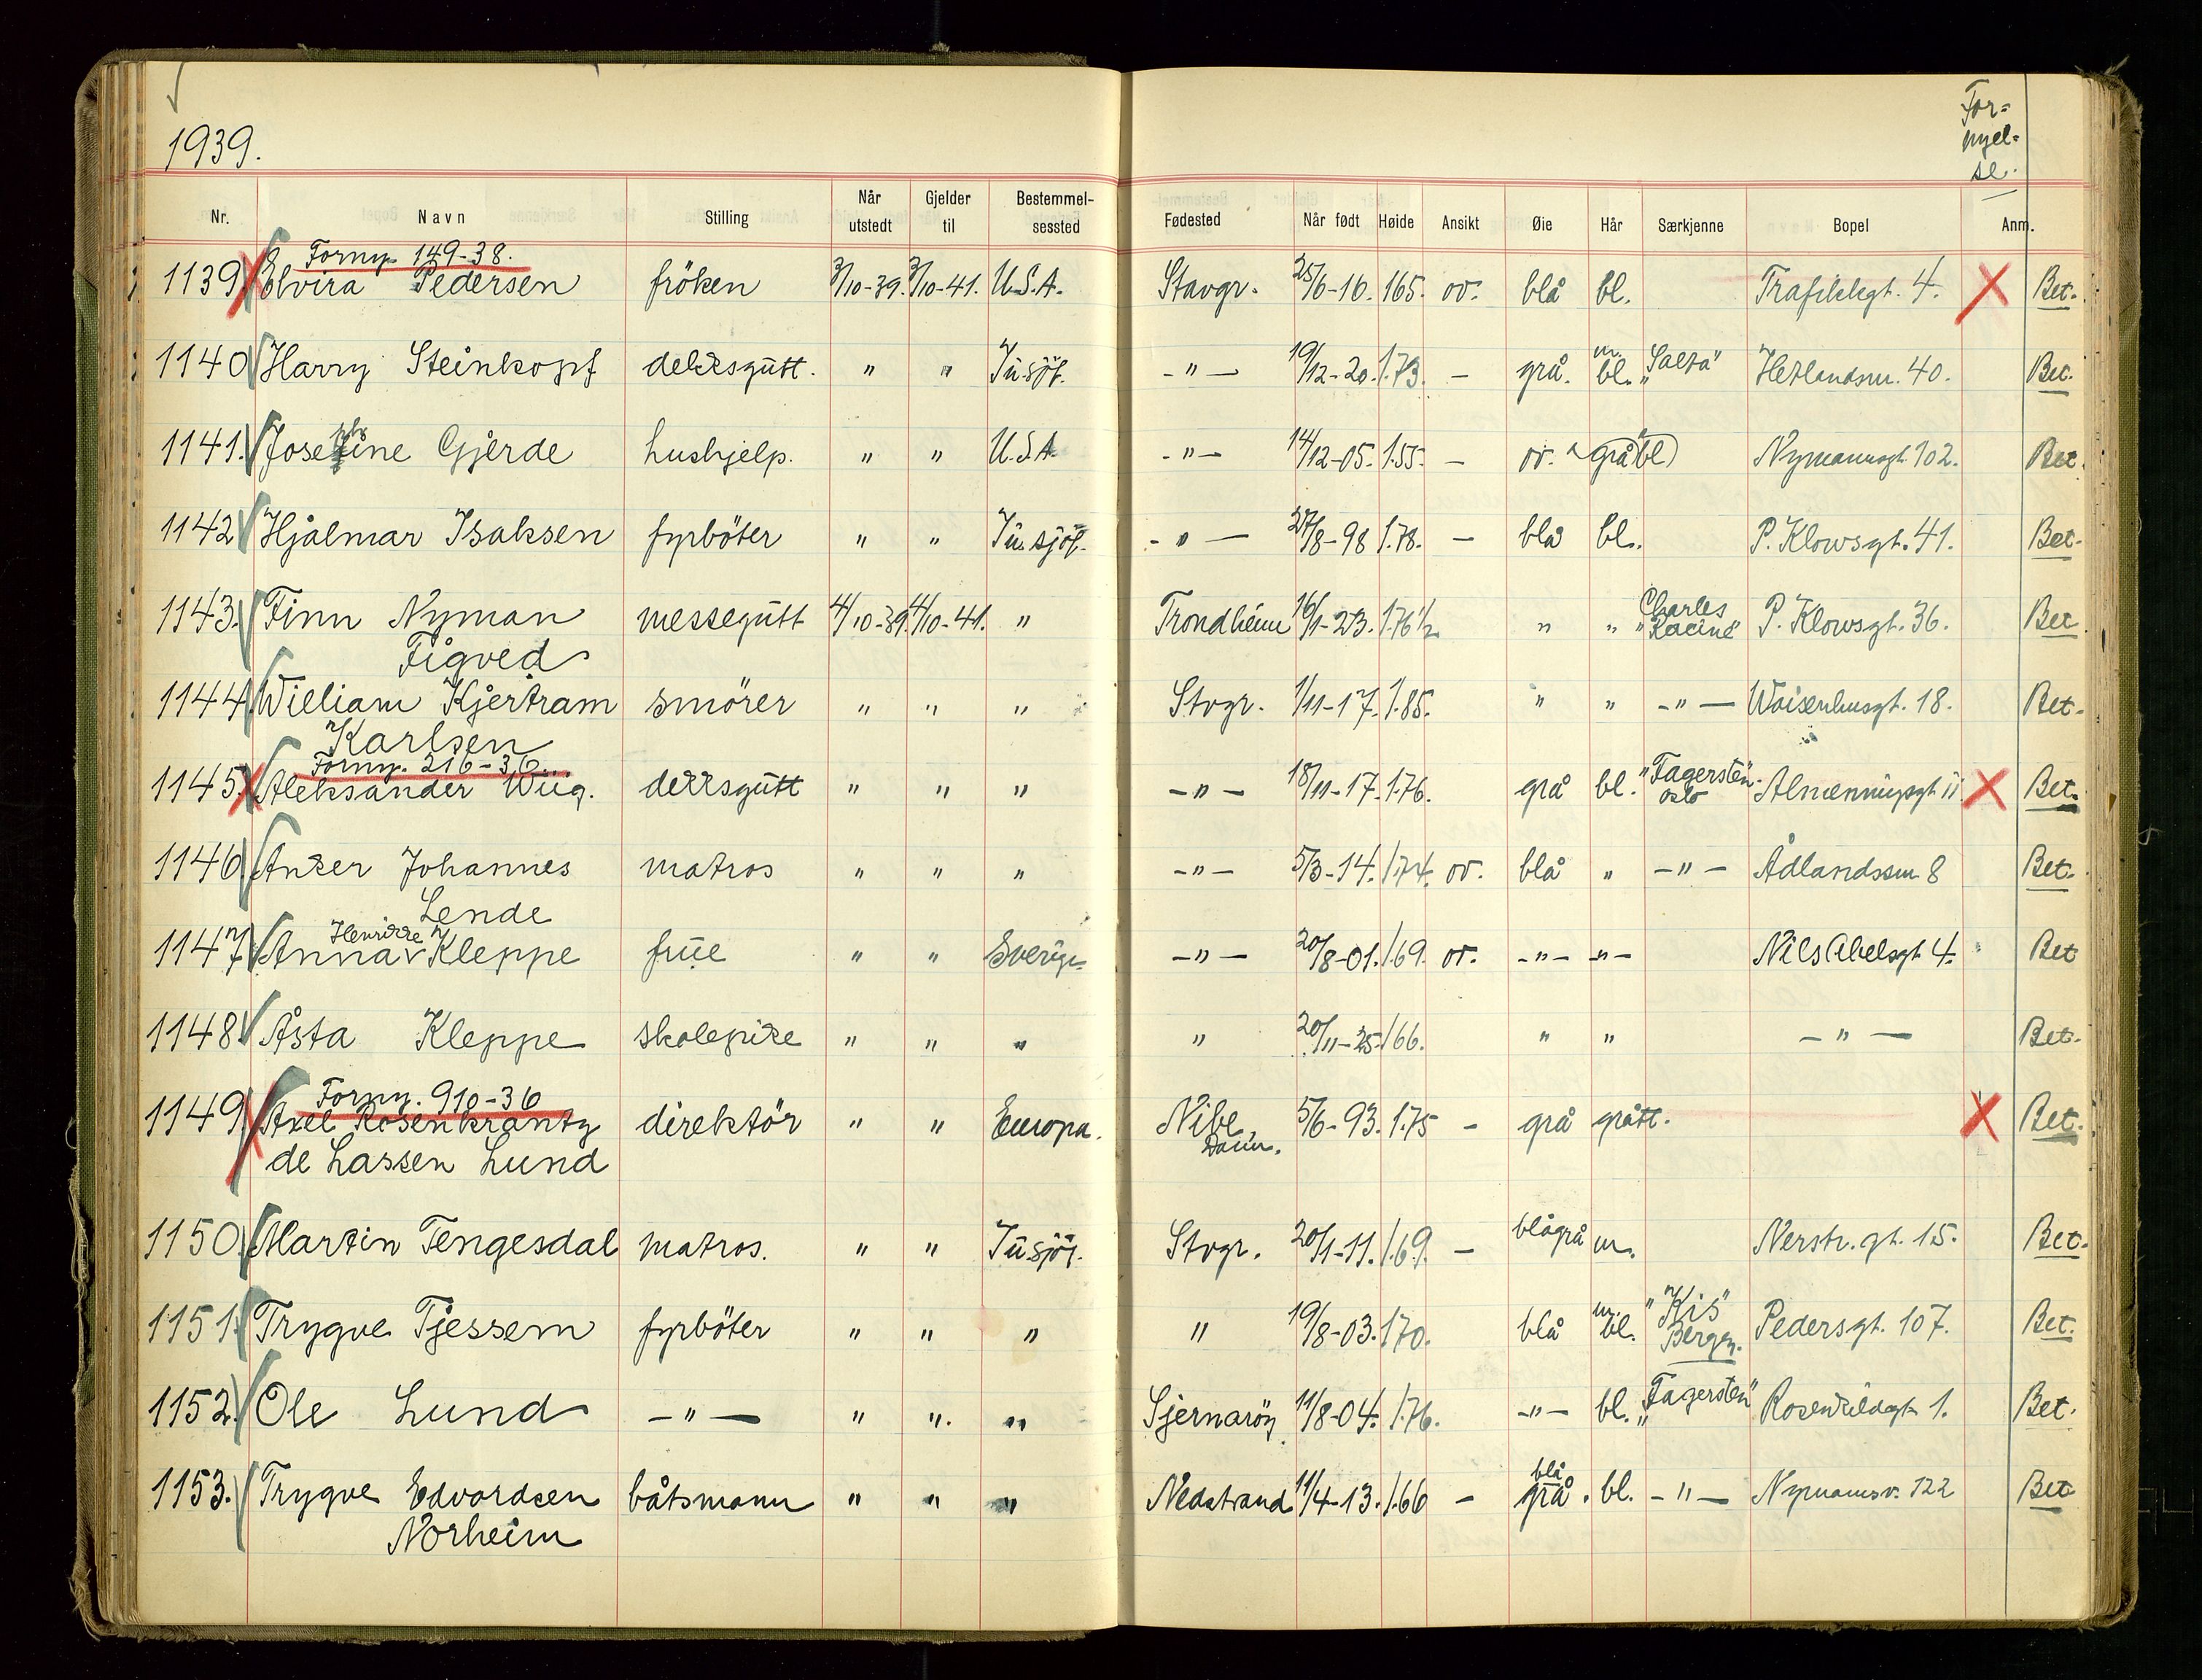 1939.
For=
nyel=
se.
Nr. Navn Stilling Når utstedt Gjelder til Bestemmel-sessted Fødested Når født Høide Ansikt Øie Hår Særkjenne Bopel Anm.
Forny. 149-38.
1139. Elvira Pedersen fröken 3/10-39. 3/10-41. U.S.A. Stavgr. 25/6-16. 165. ov. blå bl. Trafikkgt. 4. X Bet.
1140 Harry Steinkopf dekksgutt. " " Tu.sjöf. -"- 19/12-20. 1.73. - grå. m. bl. "Salta" Hetlandsm. 40. Bet.
1141. Josephine Gjerde hushjelp. " " U.S.A. -"- 14/12-05. 1.55. - ov. grå bl Nymannsgt. 102. Bet.
1142 Hjalmar Isaksen fyrböter " " Tu.sjöf. -"- 27/8-98 1.78. - blå bl. P. Klowsgt. 41. Bet.
1143. Finn Nyman messegutt 4/10-39. 4/10-41. " Trondheim 16/1-23. 1.76 1/2 " " "Charles Racine" P. Klowsgt. 36. Bet.
Figved
1144 William Kjertram smörer " " " Stvgr. 1/11-17. 1.85. " " -"- Waisenhusgt. 18. Bet.
Karlsen
Forny. 216-36.
1145. Aleksander Wiig. dekksgutt " " " -"- 18/11-17. 1.76. grå bl. "Fagersten" Oslo Almenningsgt 11. X Bet.
1146 Anker Johannes matros " " " -"- 5/3-14. 1.74. ov. blå " -"- Ådlandssm 8 Bet.
Lende
1147 Anna Henrikke Kleppe frue " " Sverige -"- 20/8-01. 1.69. ov. -"- -"- Nils Abelsgt 4. Bet
1148. Åsta Kleppe skolepike " " " " 20/11-25. 166. " " -"- Bet.
Forny. 910-36
1149. Axel Rosenkrantz direktör " " Europa. Nibe, Danm. 5/6-93. 1.75 - grå grått. X Bet.
de Lassen Lund
1150. Martin Tengesdal matros. " " Tu.sjöf. Stvgr. 20/1-11. 1.69. - blågrå m. Nerstr.gt. 15. Bet.
1151. Trygve Tjessem fyrböter " " " " 19/8-03. 170. blå m. bl. "Kis" Bergen. Pedersgt. 107. Bet.
1152. Ole Lund -"- " " " Sjernaröy 11/8-04. 1.76. -"- bl. "Fagersten" Rosenkildegt 1. Bet.
1153. Trygve Edvardsen båtsmann " " " Nedstrand 11/4-13. 1.66 - blå grå. bl. -"- Nymansv. 122 Bet
Norheim